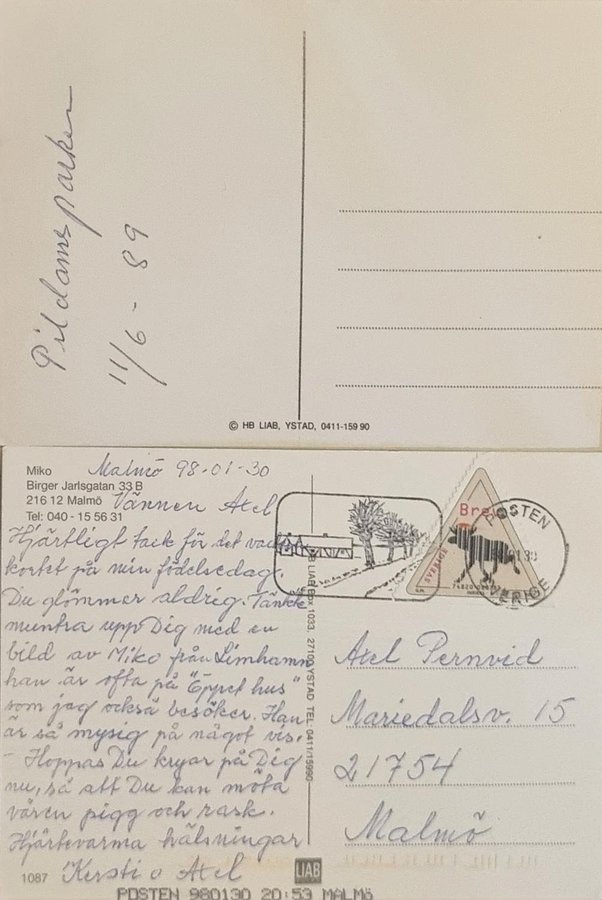 Pildamsparken
11/6 - 89
© HB LIAB, YSTAD, 0411-159 90
Miko
Birger Jarlsgatan 33 B
216 12 Malmö
Tel: 040 - 15 56 31
Malmö 98-01-30
Vännen Axel
Hjärtligt tack för det vackra
kortet på min födelsedag.
Du glömmer aldrig. Tänkte
muntra upp Dig med en
bild av Miko från Limhamn
han är ofta på "Öppet hus"
som jag också besöker. Han
är så mysig på något vis.
- Hoppas Du kryar på Dig
nu, så att Du kan möta
våren pigg och rask.
Hjärtevarma hälsningar
Kersti o Axel
1087
HB LIAB Box 1033, 27100 YSTAD TEL 0411/15990
LIAB
SVERIGE
POSTEN
SVERIGE
Axel Pernvid
Mariedalsv. 15
21754
Malmö
POSTEN 980130 20:53 MALMÖ